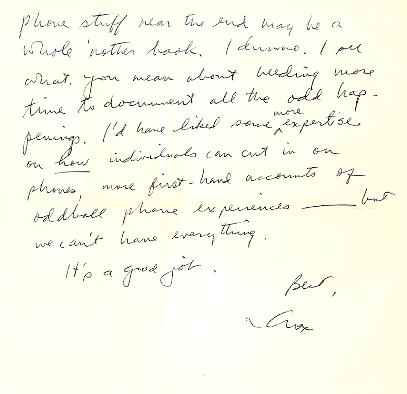 phone stuff near the end may be a
whole 'nother book. I dunno. I see
what you mean about needing more
time to document all the odd hap-
penings. I'd have liked some more expertise
on how individuals can cut in on
phones, more first-hand accounts of
oddball phone experiences —— but
we can't have everything.
It's a good job.
Best,